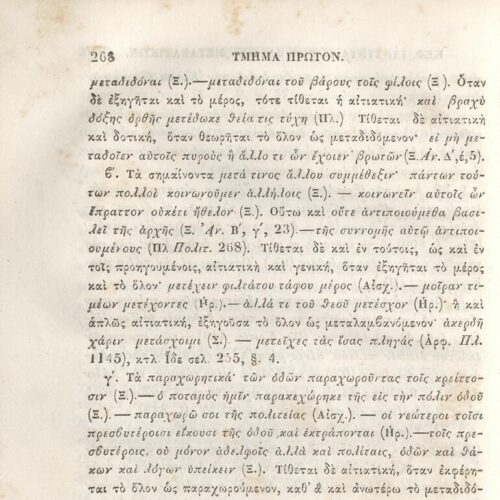 268 ΤΜΗΜΑ ΠΡΩΤΟΝ.
μεταδιδόναι (Ξ.).—μεταδιδόναι τοῦ βάρους τοῖς φίλοις (Ξ.). Ὅταν
δὲ ἐξηγῆται καὶ τὸ μέρος, τότε τίθεται ἡ αἰτιατική· καὶ βραχὺ
δόξης ὀρθῆς μετέδωκε θεία τις τύχη (Πλ.) Τίθεται δὲ αἰτιατικὴ
καὶ δοτική, ὅταν θεωρῆται τὸ ὅλον ὡς μεταδιδόμενον· εἰ μὴ με-
ταδοῖεν αὐτοῖς πυροὺς ἢ ἄλλο τι ὧν ἔχοιεν βρωτῶν (Ξ. Αν. Δ΄,έ,5).
ϐ΄. Τὰ σημαίνοντα μετά τινος ἄλλου συμμέθεξιν· πάντων τού-
των πολλοὶ κοινωνοῦμεν ἀλλήλοις (Ξ.). — κοινωνεῖν αὐτοῖς ὧν
ἔπραττον οὐκέτι ἤθελον (Ξ.). Οὕτω καὶ οὔτε ἀντιποιούμεθα βασι-
λεῖ τῆς ἀρχῆς (Ξ. Ἀν. Β΄, γ΄, 23).—τῆς συννομῆς αὐτῷ ἀντιποι-
ουμένους (Πλ Πολιτ. 268). Τίθεται δὲ καὶ ἐν τούτοις, ὡς καὶ ἐν
τοῖς προηγουμένοις, αἰτιατικὴ καὶ γενική, ὅταν ἐξηγῆται τὸ μέρος
καὶ τὸ ὅλον· μετέχειν φιλτάτου τάφου μέρος (Αἰσχ.).—μοῖραν τι-
μέων μετέχοντες (Ηρ.).—ἀλλά τι τοῦ θεοῦ μετέσχον (Ηρ.)· ἢ καὶ
ἁπλῶς αἰτιατική, ἐξηγοῦσα τὸ ὅλον ὡς μεταλαμβανόμενον· ἀκερδῆ
χάριν μετάσχοιμι (Σ.) — μετεῖχες τὰς ἴσας πληγάς (Αρφ. Πλ.
1145), κτλ. Ἴδε σελ. 255, §. 4.
γ΄. Τὰ παραχωρητικά· τῶν ὁδῶν παραχωροῦντας τοῖς κρείττο-
σιν (Ξ.).— ὁ ποταμὸς ἡμῖν παρακεχώρηκε τῆς εἰς τὴν πόλιν ὁδοῦ
(Ξ.).— παραχωρῶ σοι τῆς πολιτείας (Αἰσχ.).— οἱ νεώτεροι τοῖσι
πρεσβυτέροισι εἴκουσι τῆς ὁδοῦ καὶ ἐκτράπονται (Ηρ.).—τοῖς πρε-
σβυτέροις, οὐ μόνον ἀδελφοῖς ἀλλὰ καὶ πολίταις, ὁδῶν καὶ θά-
κων καὶ λόγων ὑπείκειν (Ξ.). Τίθεται δὲ αἰτιατική, ὅταν ἐκφέρη-
ται τὸ ὅλον ὡς παραχωρούμενον, καθ' ἃ καὶ ἀνωτέρω τὸ μεταδιδό-